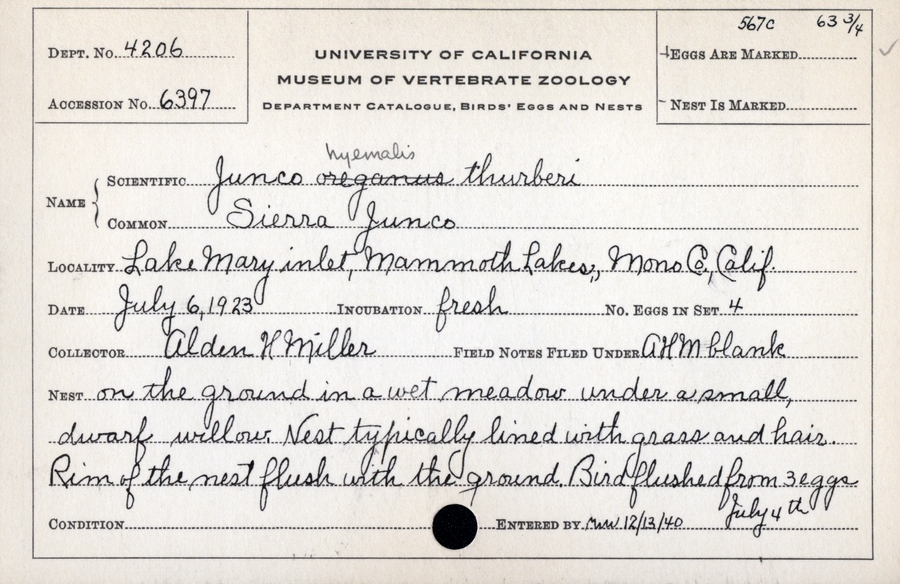 567c 63 3/4
DEPT. NO. 4206
UNIVERSITY OF CALIFORNIA
+EGGS ARE MARKED
MUSEUM OF VERTEBRATE ZOOLOGY
ACCESSION NO. 6397
DEPARTMENT CATALOGUE, BIRDS' EGGS AND NESTS
- NEST IS MARKED
hyemalis
NAME { SCIENTIFIC Junco oreganus thurberi
COMMON Sierra Junco
LOCALITY Lake Mary inlet, Mammoth Lakes, Mono Co., Calif.
DATE July 6, 1923 INCUBATION fresh NO. EGGS IN SET 4
COLLECTOR Alden H Miller FIELD NOTES FILED UNDER AHM blank
NEST on the ground in a wet meadow under a small,
dwarf willow. Nest typically lined with grass and hair.
Rim of the nest flush with the ground. Bird flushed from 3 eggs
July 4th
CONDITION ENTERED BY 12/13/40